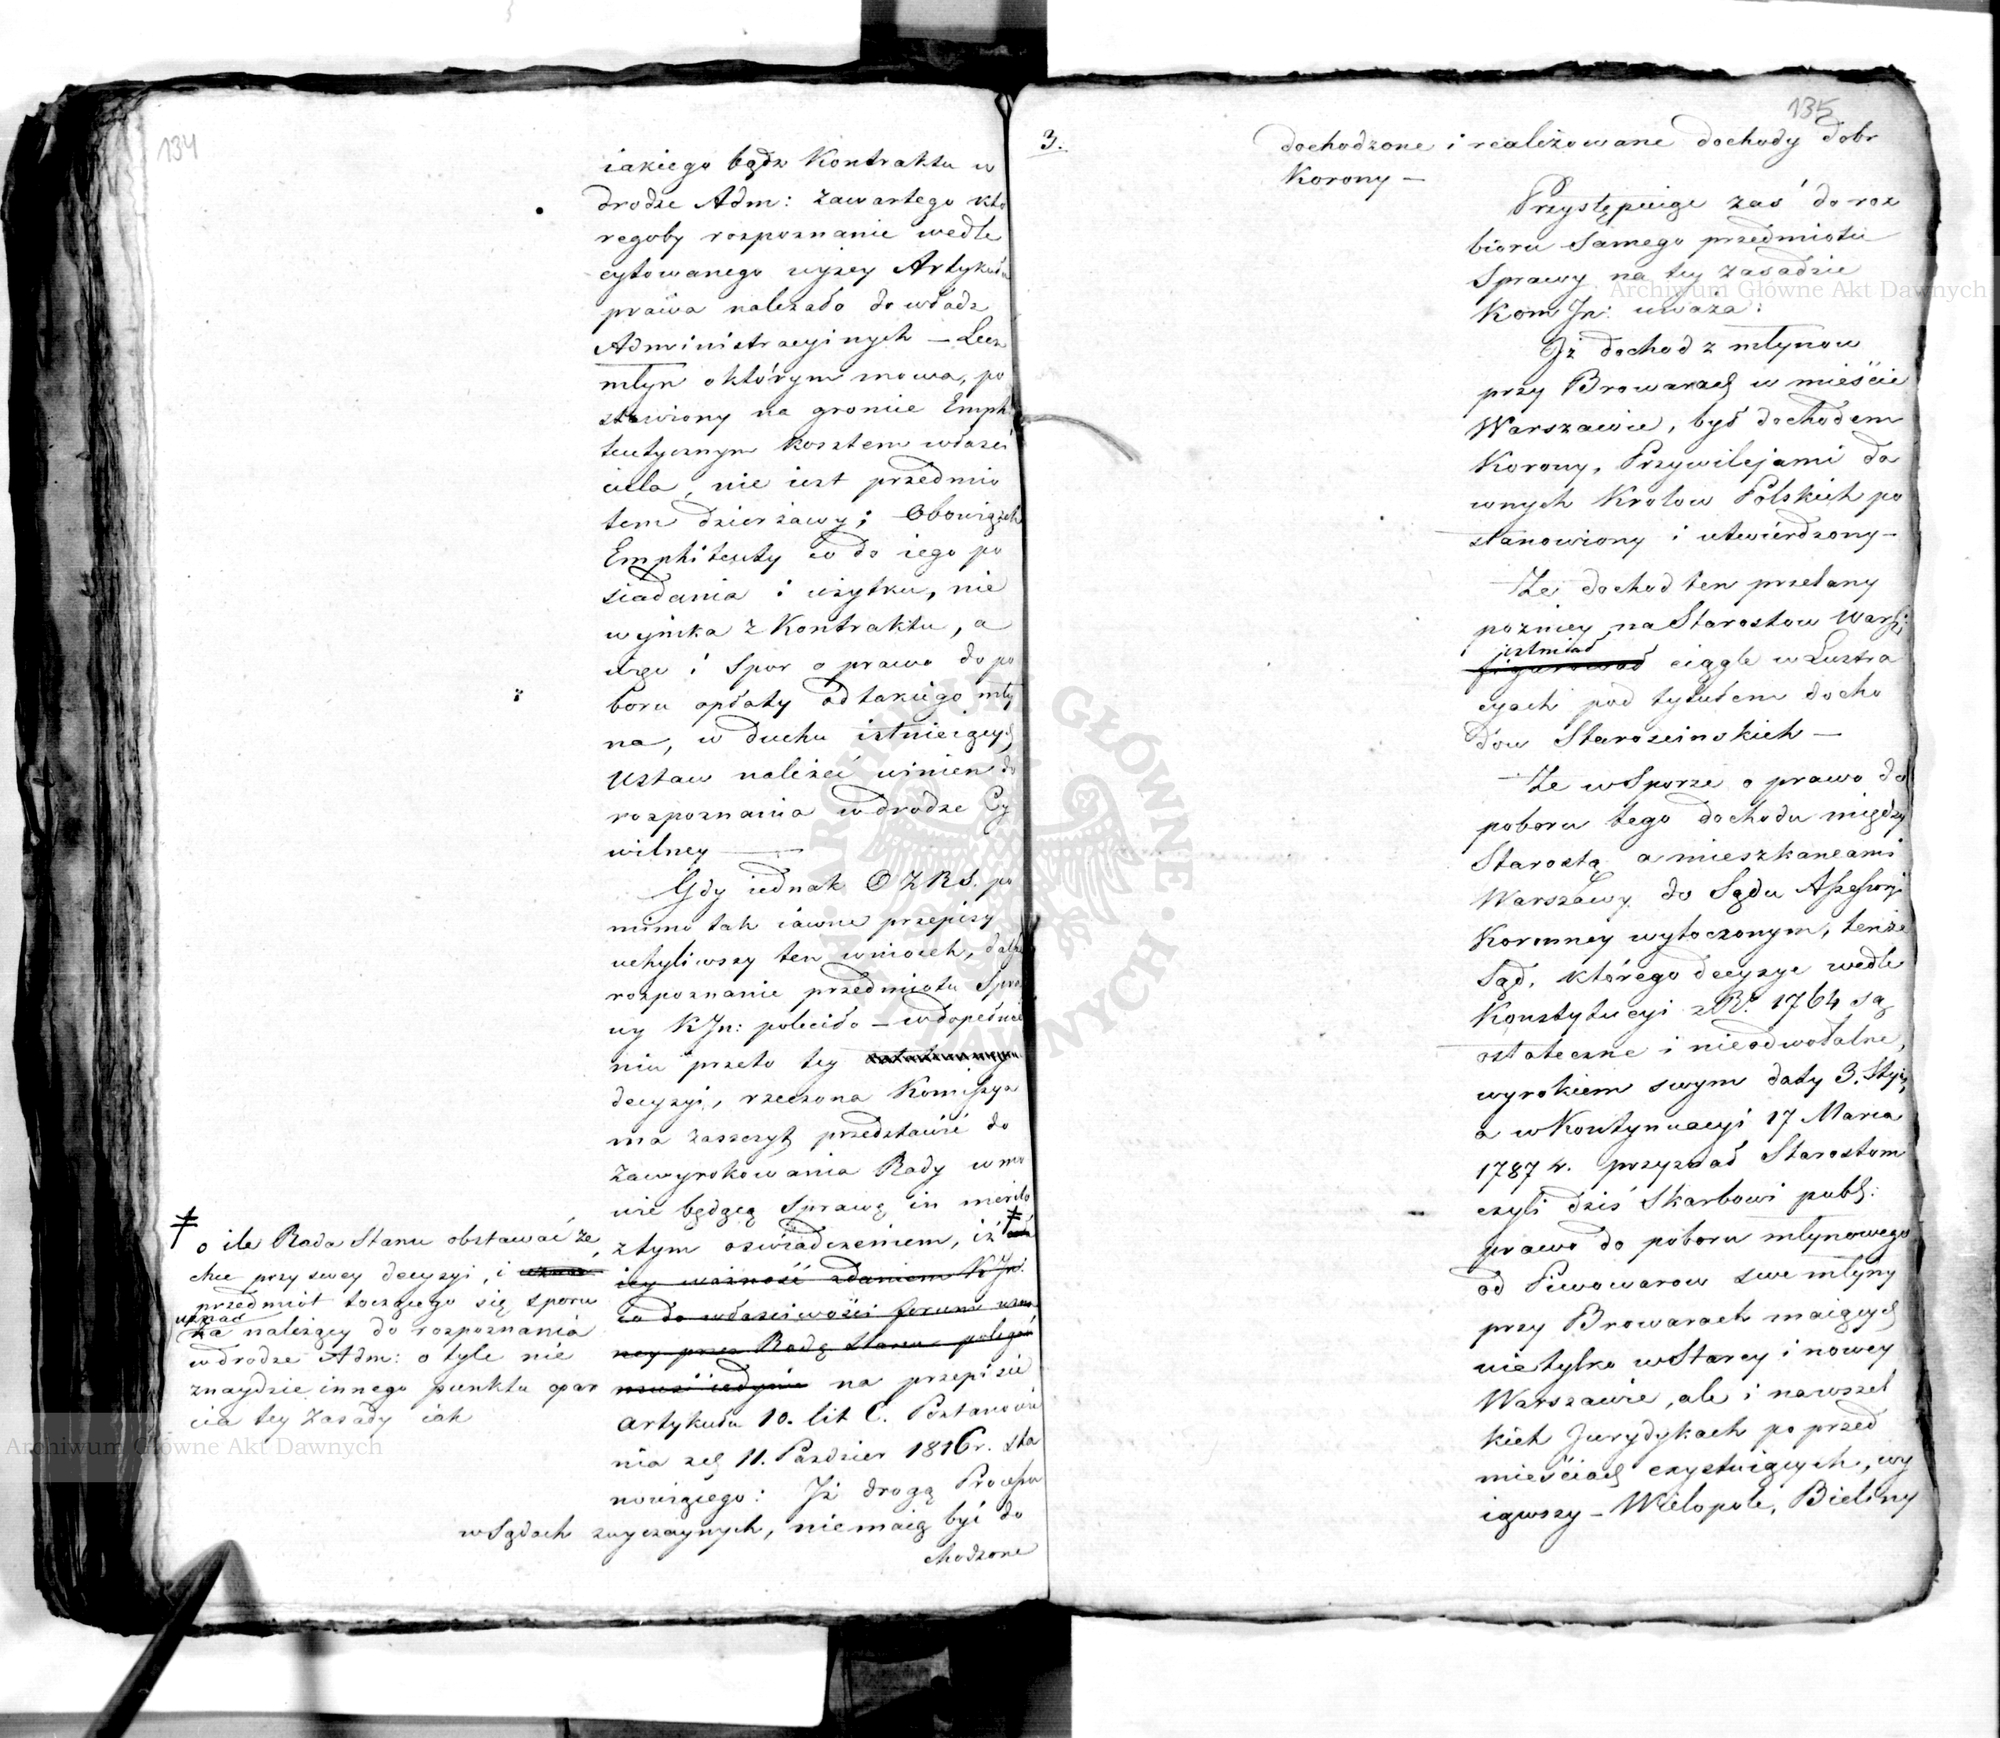 134
iakiego bądz Kontraktu w
drodze Adm: zawartego któ
regoby rozpoznanie wedle
cytowanego wyżey Artykułu
prawa należało do władz
Administracyinych — Lecz
młyn o którym mowa, po
stawiony na groncie Emphi
teutycznym kosztem właści
ciela, nie iest przedmio
tem dzierżawy; Obowiązek
Emphiteuty co do iego po
siadania i użytku, nie
wynika z Kontraktu, a
więc i Spor o prawo do po
boru opłaty od takiego mły
na, w duchu istnieiących
Ustaw należeć winien do
rozpoznania w drodze Cy
wilney —
Gdy iednak O Z R S. po
mimo tak iawne przepisy
uchyliwszy ten wniosek, dalsze
rozpoznanie przedmiotu Spra
wy K Jn: poleciło — w dopełnie
niu przeto tey
decyzyi, rzeczona Kommissya
ma zaszczyt przedstawić do
zawyrokowania Rady w mo
wie będącą Sprawę in merito
z tym oświadczeniem, iż ‡
iey ważność zdaniem K Jn:
co do właściwości forum uzna
ney przez Radę Stanu polegać
musi iedynie na przepisie
artykułu 10. lit C. Postanowie
nia z d. 11. Paździer 1816 r. sta
nowiącego: Iż drogą Processu
w Sądach zwyczaynych, nie maią być do
chodzone
‡ o ile Rada Stanu obstawać ze
chce przy swey decyzyi, i
przedmiot toczącego się sporu
uznać
za należący do rozpoznania
w drodze Adm: o tyle nie
znaydzie innego punktu opar
cia tey zasady iak
135
3.
dochodzone i realizowane dochody dobr
Korony —
Przystępuiąc zaś do roz
bioru samego przedmiotu
Sprawy na tey zasadzie
Kom Jn: uważa:
Iż dochod z młynow
przy Browarach w mieście
Warszawie, był dochodem
Korony, Przywilejami da
wnych Krolow Polskich po
stanowiony i utwierdzony —
Że dochod ten przelany
poźniey na Starostow Warsz:
istniał
figurował ciągle w Lustra
cyach pod tytułem docho
dow Starościnskich —
Że w Sporze o prawo do
poboru tego dochodu między
Starostą a mieszkancami
Warszawy do Sądu Assessoryi
Koronney wytoczonym, tenże
Sąd, którego decyzye wedle
Konstytucyi z R. 1764 są
ostateczne i nieodwołalne,
wyrokiem swym daty 3. Stycz,
a w Kontynuacyi 17 Marca
1787 r. przyznał Starostom
czyli dziś Skarbowi publ:
prawo do poboru młynowego
od Piwowarow swe młyny
przy Browarach maiących
nie tylko w Starey i nowey
Warszawie, ale i na wszel
kich Jurydykach po przed
mieściach exystuiących, wy
iąwszy — Wielopole, Bieliny
Archiwum Główne Akt Dawnych
Archiwum Główne Akt Dawnych
ARCHIWUM GŁÓWNE AKT DAWNYCH